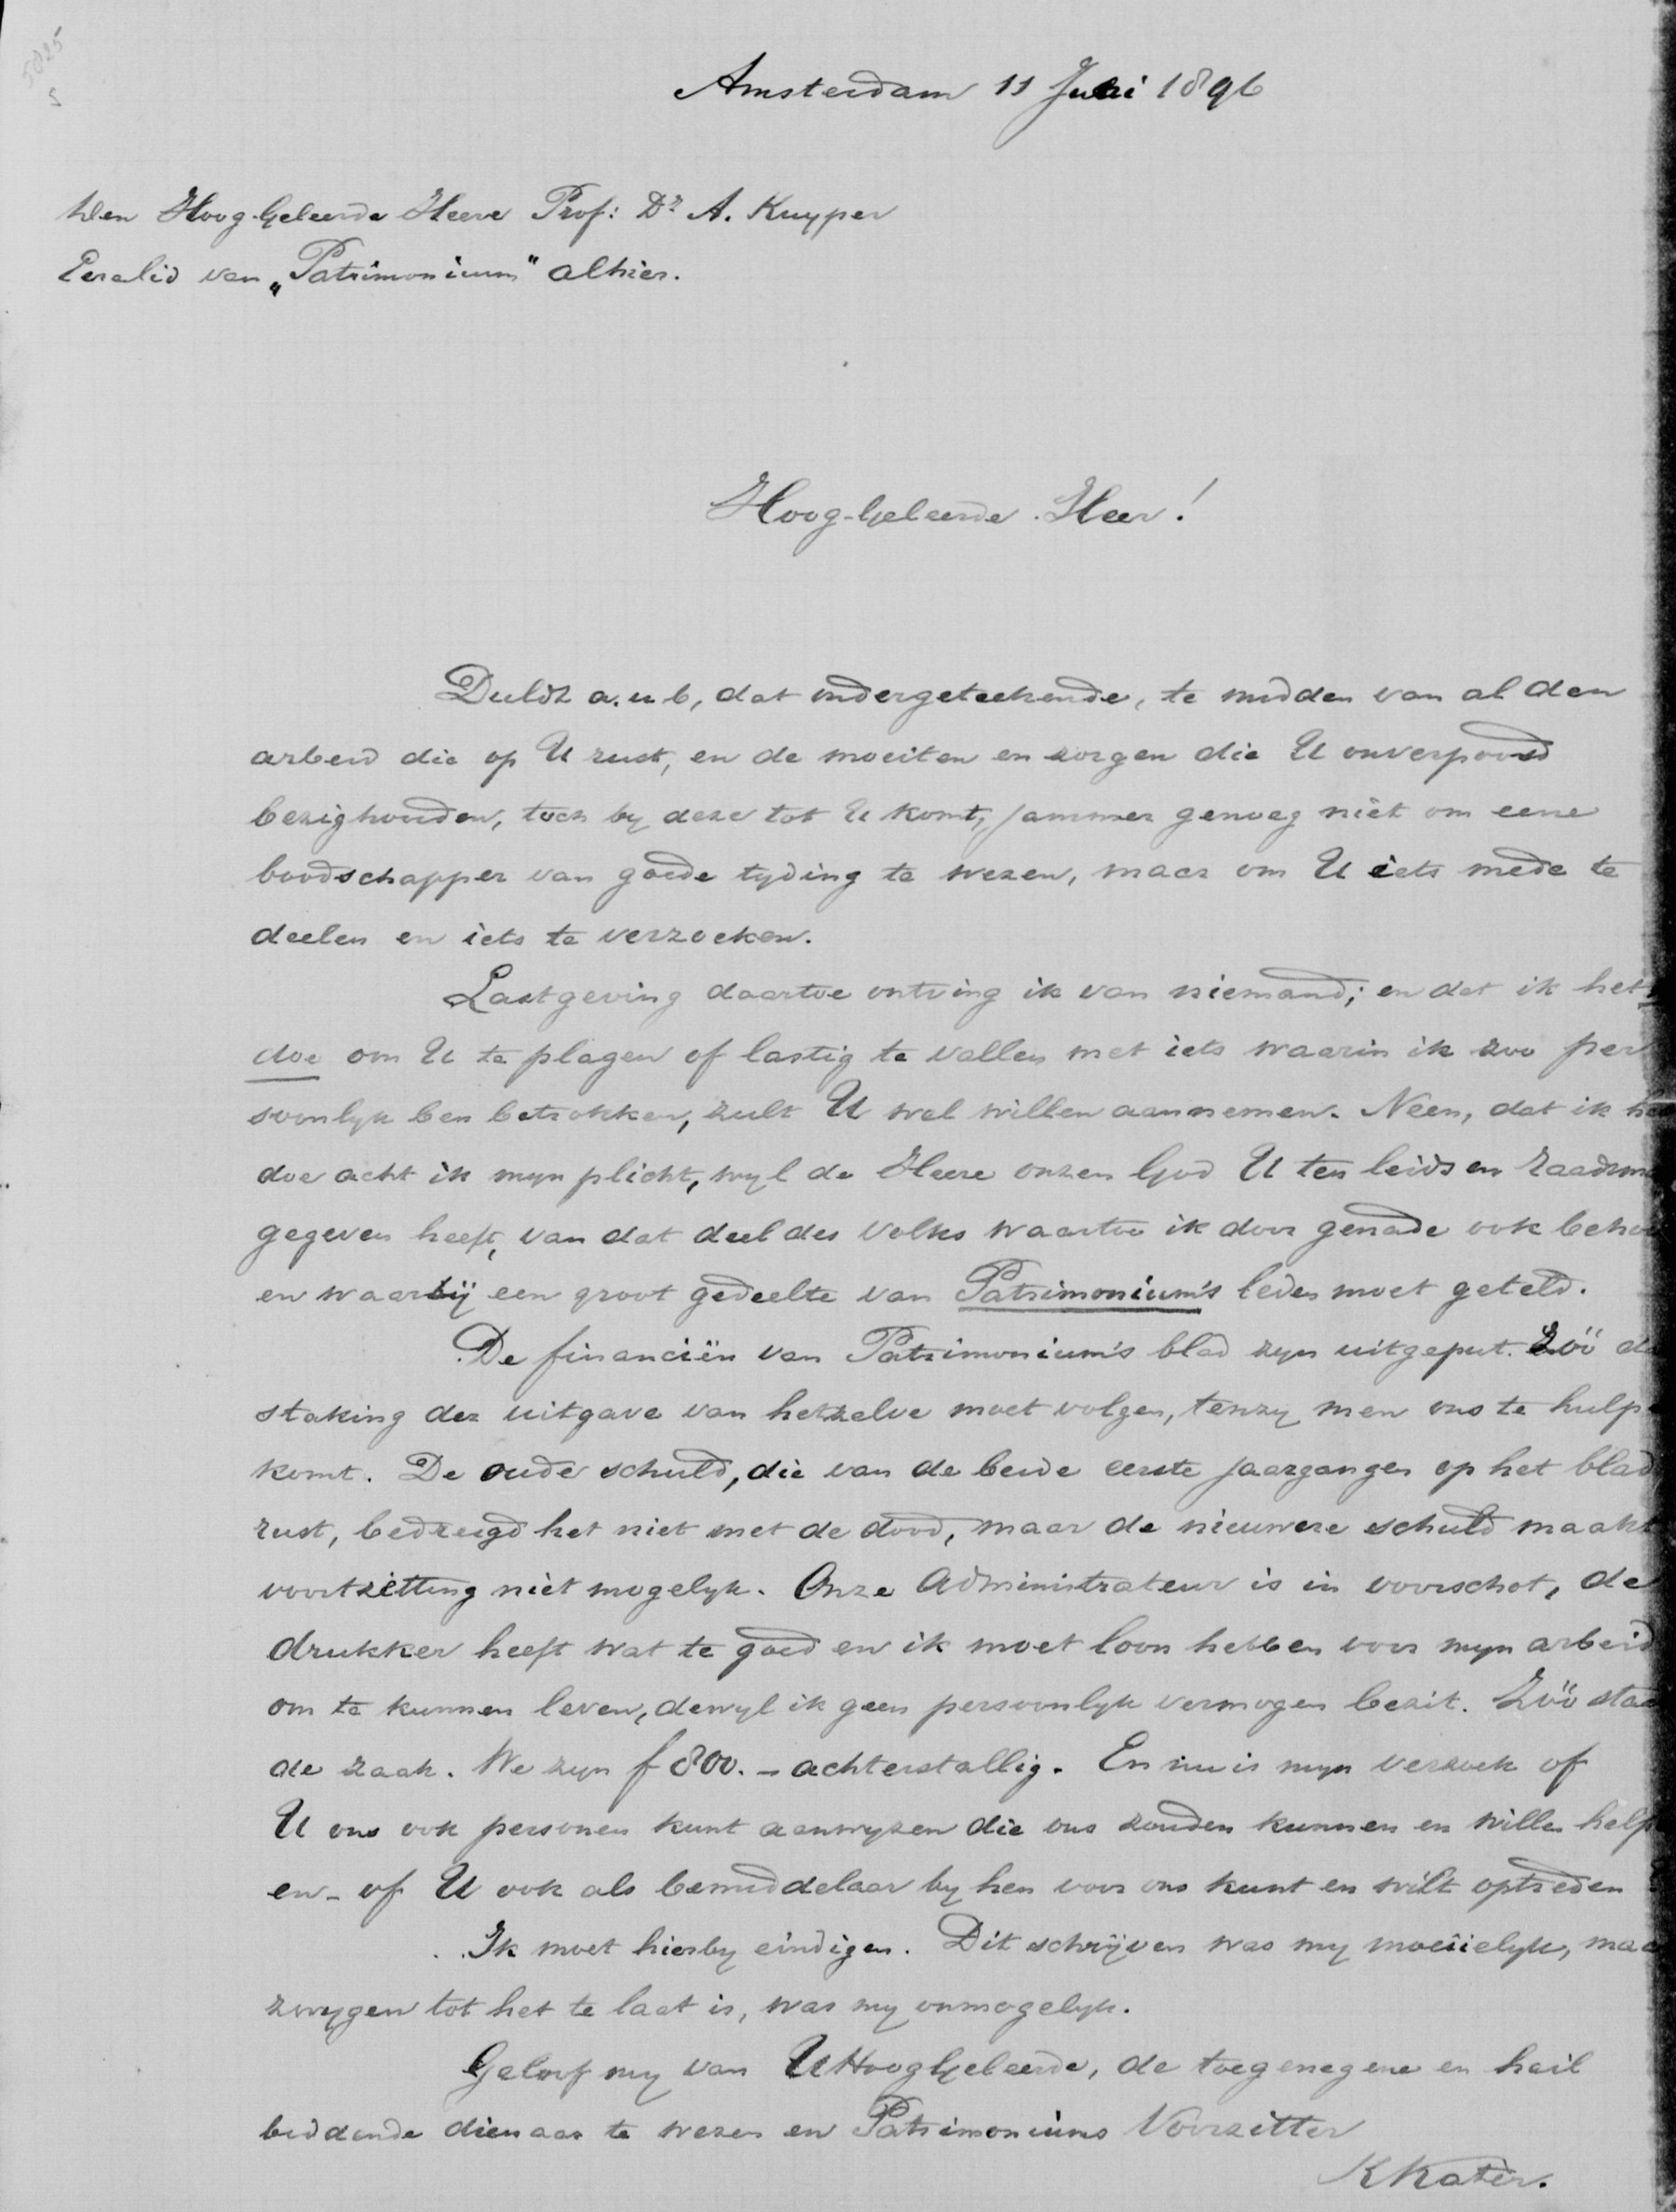 5825
5
Amsterdam 11 Juli 1896
Den Hoog-Geleerde Heere Prof: Dr A. Kuyper
Eerelid van „Patrimonium" alhier.
Hoog-Geleerde Heer!
Duldt a.u.b, dat ondergeteekende, te midden van al den
arbeid die op U rust, en de moeiten en zorgen die U onverpoosd
bezighouden, toch by deze tot U komt, jammer genoeg niet om eene
boodschapper van goede tyding te wezen, maar om U iets mede te
deelen en iets te verzoeken.
Lastgeving daartoe ontving ik van niemand; en dat ik het
doe om U te plagen of lastig te vallen met iets waarin ik zoo per
soonlyk ben betrokken, zult U wel willen aannemen. Neen, dat ik he
doe acht ik myn plicht, wyl de Heere onzen God U ten leids en raadsm
gegeven heeft, van dat deel des volks waartoe ik door genade ook beho
en waarbij een groot gedeelte van Patrimonium's leden moet geteld.
De financiën van Patrimonium's blad zyn uitgeput. Zóó da
staking der uitgave van hetzelve moet volgen, tenzy men ons te hulp
komt. De oude schuld, die van de beide eerste jaargangen op het blad
rust, bedreigd het niet met de dood, maar de nieuwere schuld maakt
voortzetting niet mogelyk. Onze Administrateur is in voorschot, de
drukker heeft wat te goed en ik moet loon hebben voor myn arbeid
om te kunnen leven, dewyl ik geen persoonlyk vermogen bezit. Zóó staa
de zaak. We zyn f 800.- achterstallig. En nu is myn verzoek of
U ons ook personen kunt aanwyzen die ons zouden kunnen en willen help
en - of U ook als bemiddelaar by hen voor ons kunt en wilt optreden
Ik moet hierby eindigen. Dit schrijven was my moeiielyk, maa
zwygen tot het te laat is, was my onmogelyk.
Geloof my van UHoogGeleerde, de toegenegene en heil
biddende dienaar te wezen en Patrimoniums Voorzitter
K Kater.